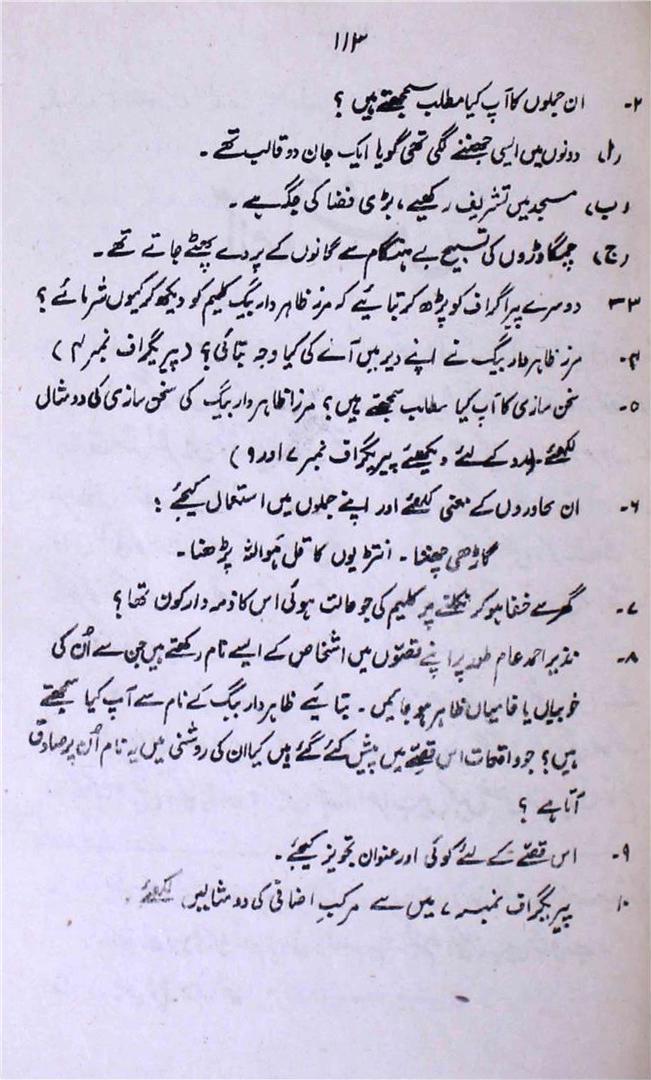 ۱۱۳
۲۔ ان جملوں کا آپ کیا مطلب سمجھتے ہیں ؟
(ا) دونوں میں ایسی چھننے لگی تھی گویا ایک جان دو قالب تھے ۔
(ب) مسجد میں تشریف رکھیے، بڑی فضا کی جگہ ہے ۔
(ج) چمگادڑوں کی تسبیح بے ہنگام سے کانوں کے پردے پھٹے جاتے تھے ۔
۳۔ دوسرے پیراگراف کو پڑھ کر بتایئے کہ مرزا ظاہر دار بیگ کلیم کو دیکھ کر کیوں شرمائے ؟
۴۔ مرزا ظاہر دار بیگ نے اپنے دیر میں آنے کی کیا وجہ بتائی ؟ (پیریگراف نمبر ۴)
۵۔ سخن سازی کا آپ کیا مطلب سمجھتے ہیں؟ مرزا ظاہر دار بیگ کی سخن سازی کی دو مثال
لکھئے۔ (مدد کے لئے دیکھئے پیریگراف نمبر ۷ اور ۹)
۶۔ ان محاوروں کے معنی لکھئے اور اپنے جملوں میں استعمال کیجئے :
گاڑھی چھننا ۔ انتڑیوں کا قل ہو اللہ پڑھنا ۔
۷۔ گھر سے خفا ہو کر نکلنے پر کلیم کی جو حالت ہوئی اس کا ذمہ دار کون تھا ؟
۸۔ نذیر احمد عام طور پر اپنے قصّوں میں اشخاص کے ایسے نام رکھتے ہیں جن سے اُن کی
خوبیاں یا خامیاں ظاہر ہو جائیں ۔ بتایئے ظاہر دار بیگ کے نام سے آپ کیا سمجھتے
ہیں ؟ جو واقعات اس قصّے میں پیش کئے گئے ہیں کیا ان کی روشنی میں یہ نام اُن پر صادق
آتا ہے ؟
۹۔ اس قصّے کے لئے کوئی اور عنوان تجویز کیجئے ۔
۱۰ پیریگراف نمبر ۷ میں سے مرکبِ اضافی کی دو مثالیں لکھئے ۔